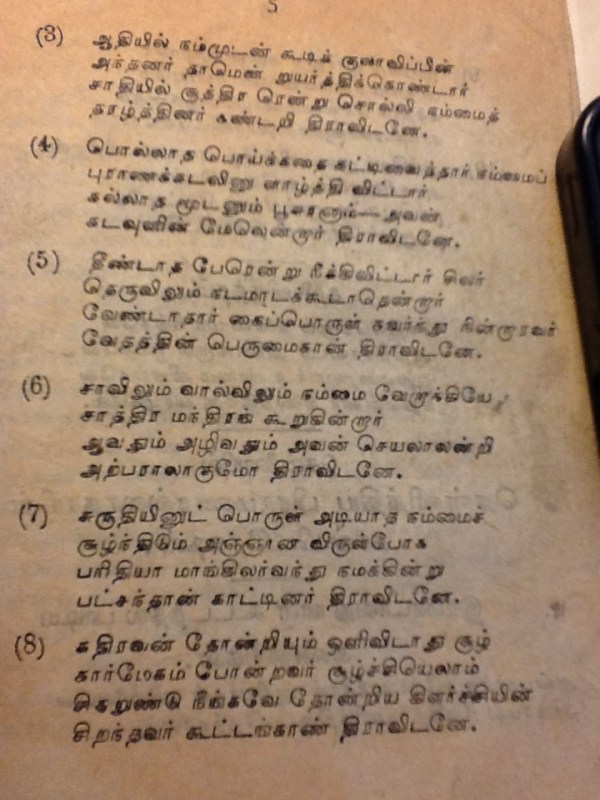 5
(3) ஆதியில் நம்முடன் கூடிக் குலாவிப்பின்
அந்தணர் தாமென் றுயர்த்திக்கொண்டார்
சாதியில் சூத்திர ரென்று சொல்லி நம்மைத்
தாழ்த்தினர் கண்டறி திராவிடனே.
(4) பொல்லாத பொய்க்கதை கட்டிவைத்தார் நம்மைப்
புராணக்கடலினு ளாழ்த்தி விட்டார்
கல்லாத மூடனும் பூசுரனாம்—அவன்
கடவுளின் மேலென்றார் திராவிடனே.
(5) தீண்டாத பேரென்று நீக்கிவிட்டார் சிலர்
தெருவிலும் நடமாடக்கூடாதென்றார்
வேண்டாதார் கைப்பொருள் கவர்ந்து நின்றாரவர்
வேதத்தின் பெருமைகாண் திராவிடனே.
(6) சாவிலும் வாவ்விலும் நம்மை வேறாக்கியே
சாத்திர மந்திரங் கூறுகின்றார்
ஆவதும் அழிவதும் அவன் செயலாலன்றி
அற்பராலாகுமோ திராவிடனே.
(7) சுருதியினுட் பொருள் அடியாத நம்மைச்
சூழ்ந்திடும் அஞ்ஞான விருள்போக
பரிதியா மாங்கிலர்வந்து நமக்கின்று
பட்சந்தான் காட்டினர் திராவிடனே.
(8) கதிரவன் தோன்றியும் ஒளிவிடாது சூழ்
கார்மேகம் போன்றவர் சூழ்ச்சியெலாம்
சிதறுண்டு நீங்கவே தோன்றிய கிளர்ச்சியின்
சிறந்தவர் கூட்டங்காண் திராவிடனே.